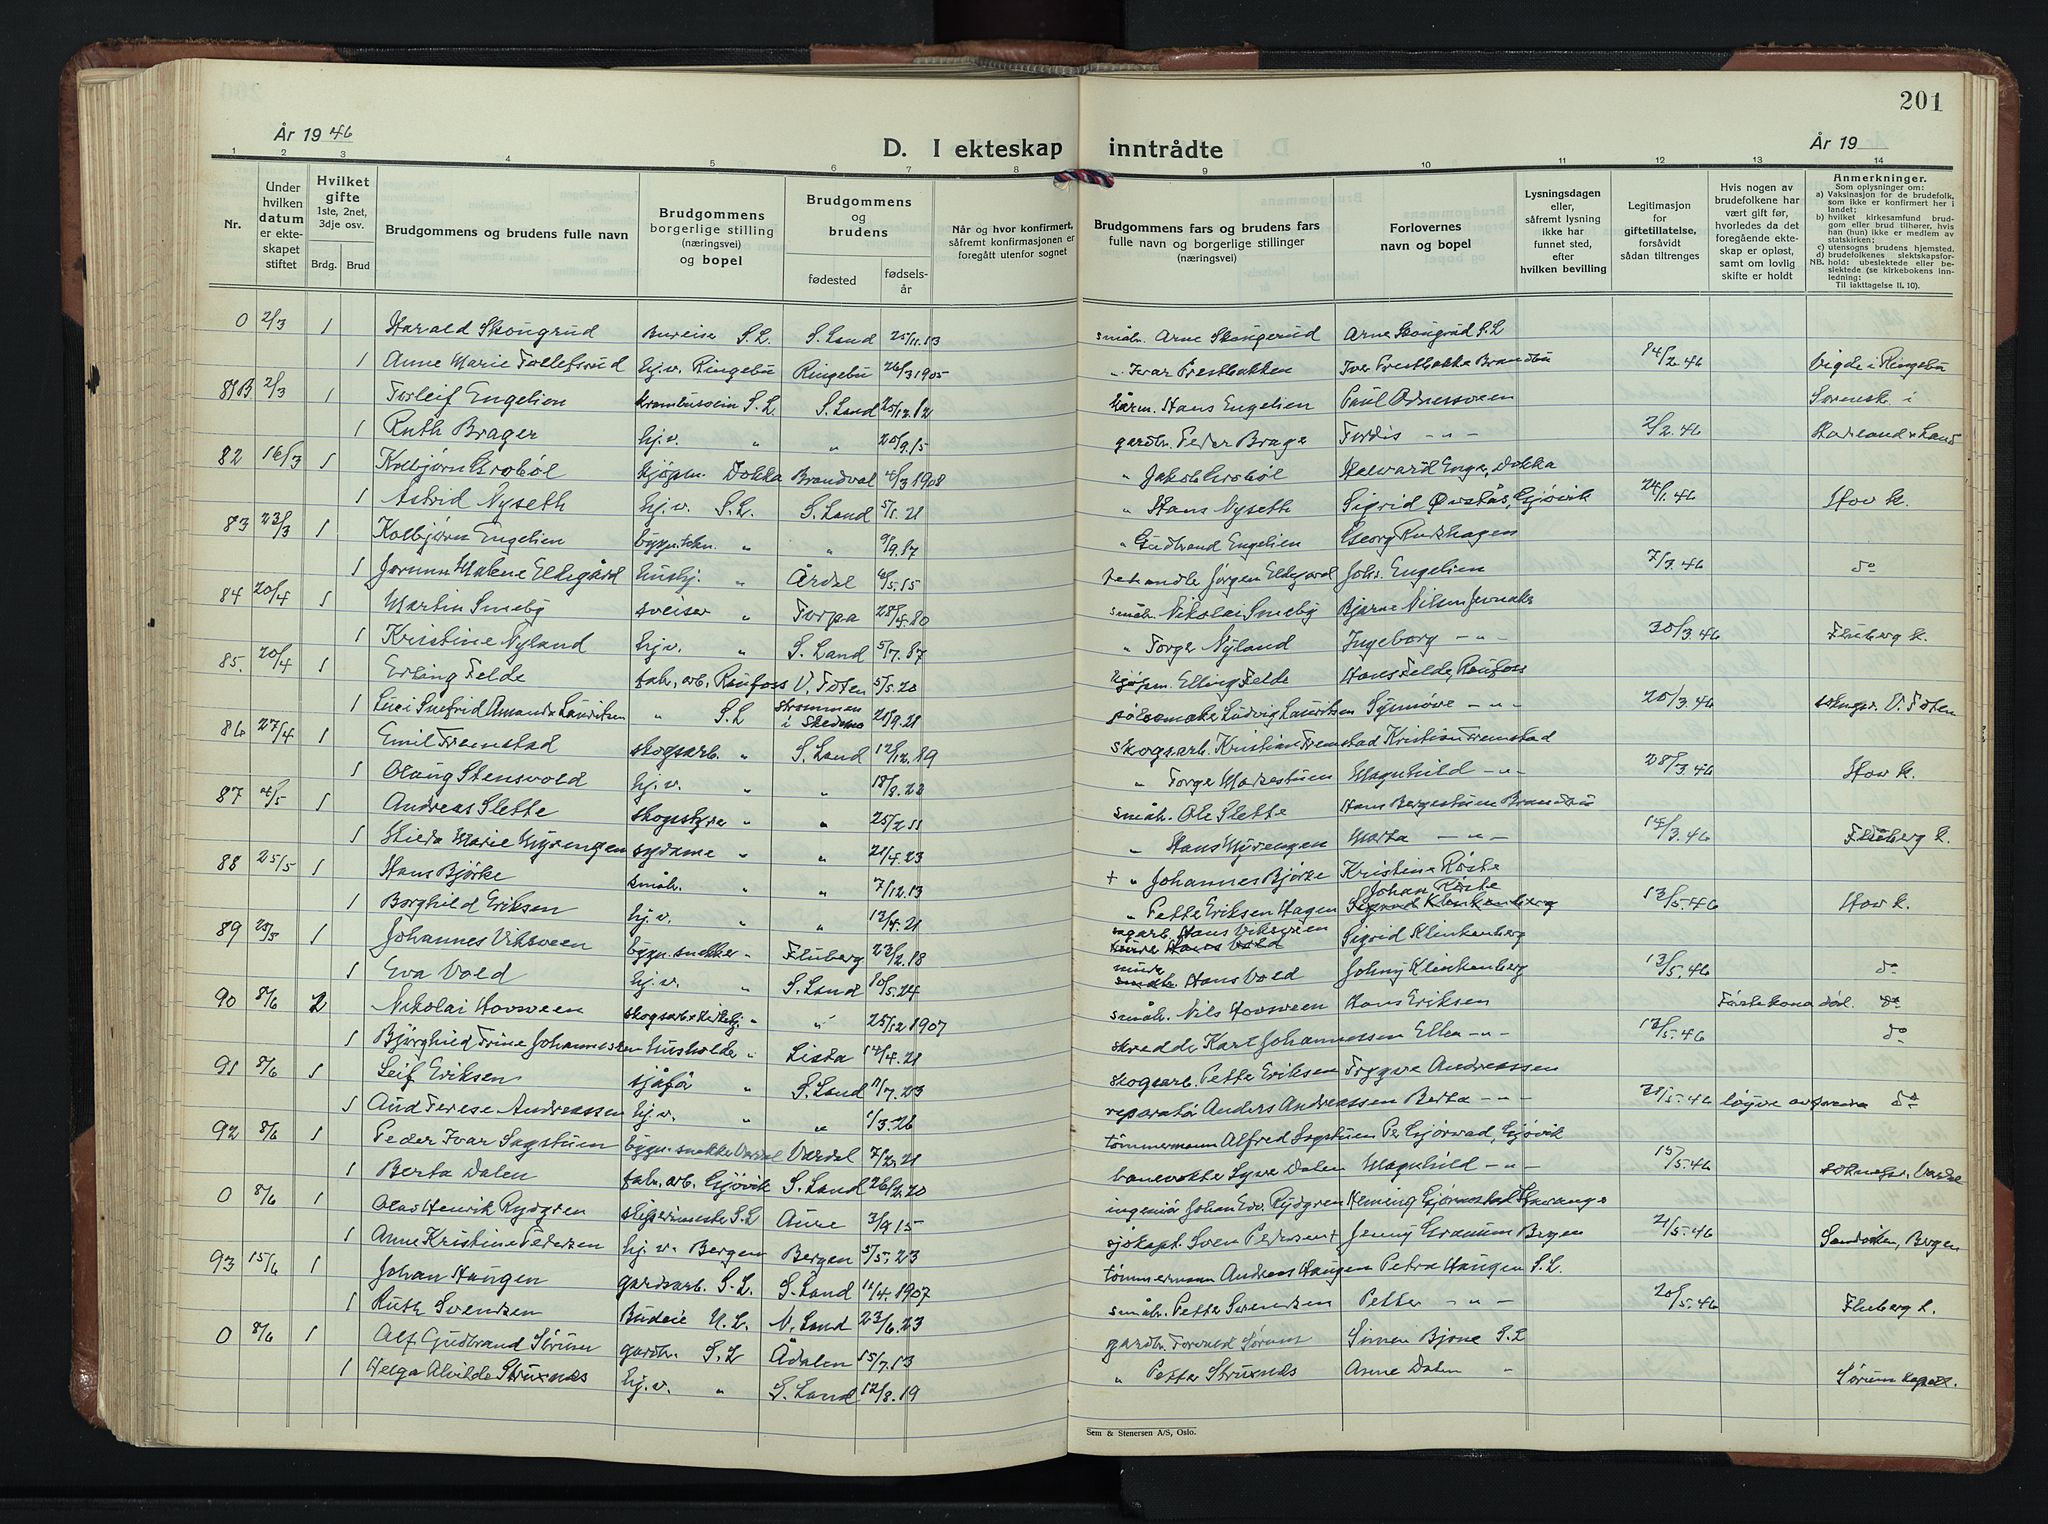 201
År 1946
D. I ekteskap inntrådte
År 19
1 2 3 4 5 6 7 8 9 10 11 12 13 14
Nr.
Under hvilken datum er ekteskapet stiftet
Hvilket gifte 1ste, 2net, 3dje osv.
Brdg. Brud
Brudgommens og brudens fulle navn
Brudgommens borgerlige stilling (næringsvei) og bopel
Brudgommens og brudens
fødested
fødselsår
Når og hvor konfirmert, såfremt konfirmasjonen er foregått utenfor sognet
Brudgommens fars og brudens fars fulle navn og borgerlige stillinger (næringsvei)
Forlovernes navn og bopel
Lysningsdagen eller, såfremt lysning ikke har funnet sted, efter hvilken bevilling
Legitimasjon for giftetillatelse, forsåvidt sådan tiltrenges
Hvis nogen av brudefolkene har vært gift før, hvorledes da det foregående ekteskap er opløst, samt om lovlig skifte er holdt
Anmerkninger.
Som oplysninger om:
a) Vaksinasjon for de brudefolk, som ikke er konfirmert her i landet;
b) hvilket kirkesamfund brudgom eller brud tilhører, hvis han (hun) ikke er medlem av statskirken;
c) utensogns brudens hjemsted.
d) brudefolkenes slektskapsforhold: ubeslektede eller beslektede (se kirkebokens innledning:
NB. Til iakttagelse II, 10).
0 2/3 1 Harald Skougrud Bureiser S.L. S. Land 25/11.13 småbr. Arne Skougerud Arne Skougrud S.L
1 Anne Marie Tollefsrud hj.v. Ringebu Ringebu 26/3 1905 " Ivar Prestbakken Iver Prestbakke Brandbu 14/2.46 Vigde i Ringebu
81B 2/3 1 Torleif Engelien S.L. S. Land 25/12.12 Hans Engelien Paul Odnessveen Sorensk. i
1 Ruth Brager hj.v. " " 20/9.15 gardbr. Peder Brage Tordis -"- 2/2.46 Hadeland & Land
82 16/3 1 Kolbjørn Grobøl Dokka Brandval 4/3 1908 " Jakob Grobøl Halvard Enge, Dokka
1 Astrid Nyseth hj.v. S.L. S. Land 5/1.21 " Hans Nyseth Sigrid Øvstås, Gjøvik 24/1.46 Hov k.
83 23/3 1 Kolbjørn Engelien bygn.tekn. " " 9/9.17 " Gudbrand Engelien Georg Rudshagen
1 Jorunn Malene Eldegård hushj. " Årdal 6/5.15 Jørgen Eldegard Johs. Engelien 7/3.46 do
84 20/4 1 Martin Smeby sveiser " Torpa 28/4.80 småbr. Nikolai Smeby Bjarne Nilsen Jevnaker
1 Kristine Nyland hj.v. " S. Land 5/7.87 " Torger Nyland Ingeborg -"- 30/3.46 Fluberg k.
85. 20/4 1 Erling Felde fabr.arb. Raufoss V. Toten 5/5.20 Elling Felde Hans Felde, Raufoss
1 Luci Snefrid Amanda Lauritsen " S.L Strømmen i Skedsmo 21/9.21 pølsemaker Ludvig Lauritsen Synnøve -"- 20/3.46 V. Toten
86 27/4 1 Emil Fremstad skogsarb. " S. Land 12/12.19 skogsarb. Kristian Fremstad Kristian Fremstad
1 Olaug Stensvold hj.v. " " 18/8.22 " Torge Markestuen Magnhild -"- 28/3.46 Hov k.
87 4/5 1 Andreas Slette skogstyre " " 25/2.11 småbr. Ole Slette Hans Bergestuen Brandbu
1 Hilda Marie Myrengen sydame " " 21/4.23 " Hans Myrengen Marta -"- 14/3.46 Fluberg k.
88 25/5 1 Hans Bjørke småbr. " " 7/12.13 + " Johannes Bjørke Kristine Røste
1 Borghild Eriksen hj.v. " " 13/4.21 " Petter Eriksen Hagen Johan Røste 13/5.46 Hov k.
89 25/5 1 Johannes Viksveen bygn.snekker " Fluberg 23/2.18 Hans Viksveen Sigrid Klinkenberg
1 Eva Vold hj.v. " S. Land 10/5.24 murer Hans Vold Johny Klinkenberg 13/5.46 do
90 8/6 2 Nikolai Hovsveen " " 25/12 1907 småbr. Nils Hovsveen Hans Eriksen Første kona død. do
1 Bjørghild Trine Johannessen husholder " Lista 14/4.21 skredder Karl Johannessen Ellen -"- 13/5.46 do
91 8/6 1 Leif Eriksen sjåfør " S. Land 11/7.23 skogsarb. Petter Eriksen Trygve Andreassen
1 Aud Terese Andreassen hj.v. " " 1/3.26 reparatør Anders Andreassen Berta -"- 31/5.46 do
92 8/6 1 Peder Ivar Sagstuen bygn.snekker Vardal Vardal 7/2.21 tømmermann Alfred Sagstuen Per Gjørvad, Gjøvik
1 Berta Dalen fabr.arb. Gjøvik S. Land 26/2.20 banevokter Syver Dalen Magnhild -"- 15/5.46 Vardal
0 8/6 1 Olav Henrik Rydgren slipermester S.L Aure 3/9.15 ingeniør Johan Edv. Rydgren
1 Anne Kristine Pedersen hj.v. Bergen Bergen 5/5.23 sjøkapt. Sven Pedersen + Jenny Granum Bergen 21/5.46 Sandviken, Bergen
93 15/6 1 Johan Haugen gardsarb. S.L. S. Land 11/4.1907 tømmermann Andreas Haugen Petra Haugen S.L.
1 Ruth Svendsen Budeie N.L. N. Land 23/6.23 småbr. Petter Svendsen Petter -"- 20/5.46 Fluberg k.
0 8/6 1 Alf Gudbrand Sørum gardbr. S.L Ådalen 15/7.13 gardbr. Torvald Sørum Simen Bjone S.L
1 Helga Alvilde Struxnes hj.v. " S. Land 12/8.19 " Petter Struxnes Anne Dalen " Sørum kapell.
Sem & Stenersen A/S, Oslo.